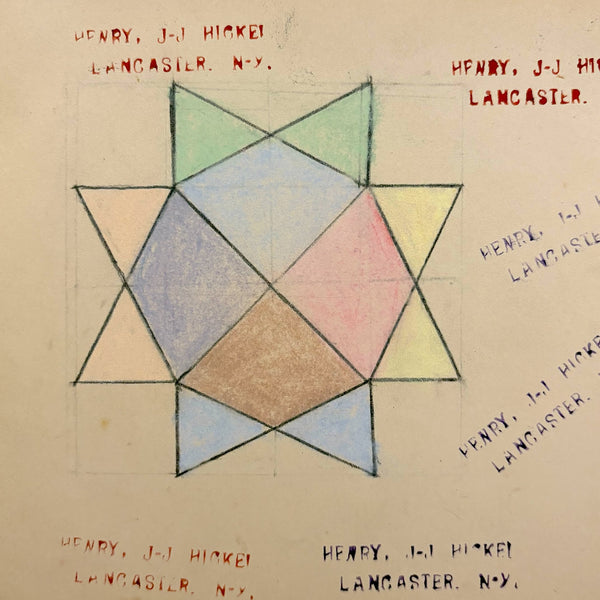 HENRY, J-J HICKEI
LANCASTER. N-Y.
HENRY, J-J HI
LANCASTER.
HENRY, J-J H
LANCASTE
HENRY, J-J HICKE
LANCASTER.
HENRY, J-J HICKEI
LANCASTER. N-Y.
HENRY, J-J HICKEI
LANCASTER. N-Y.